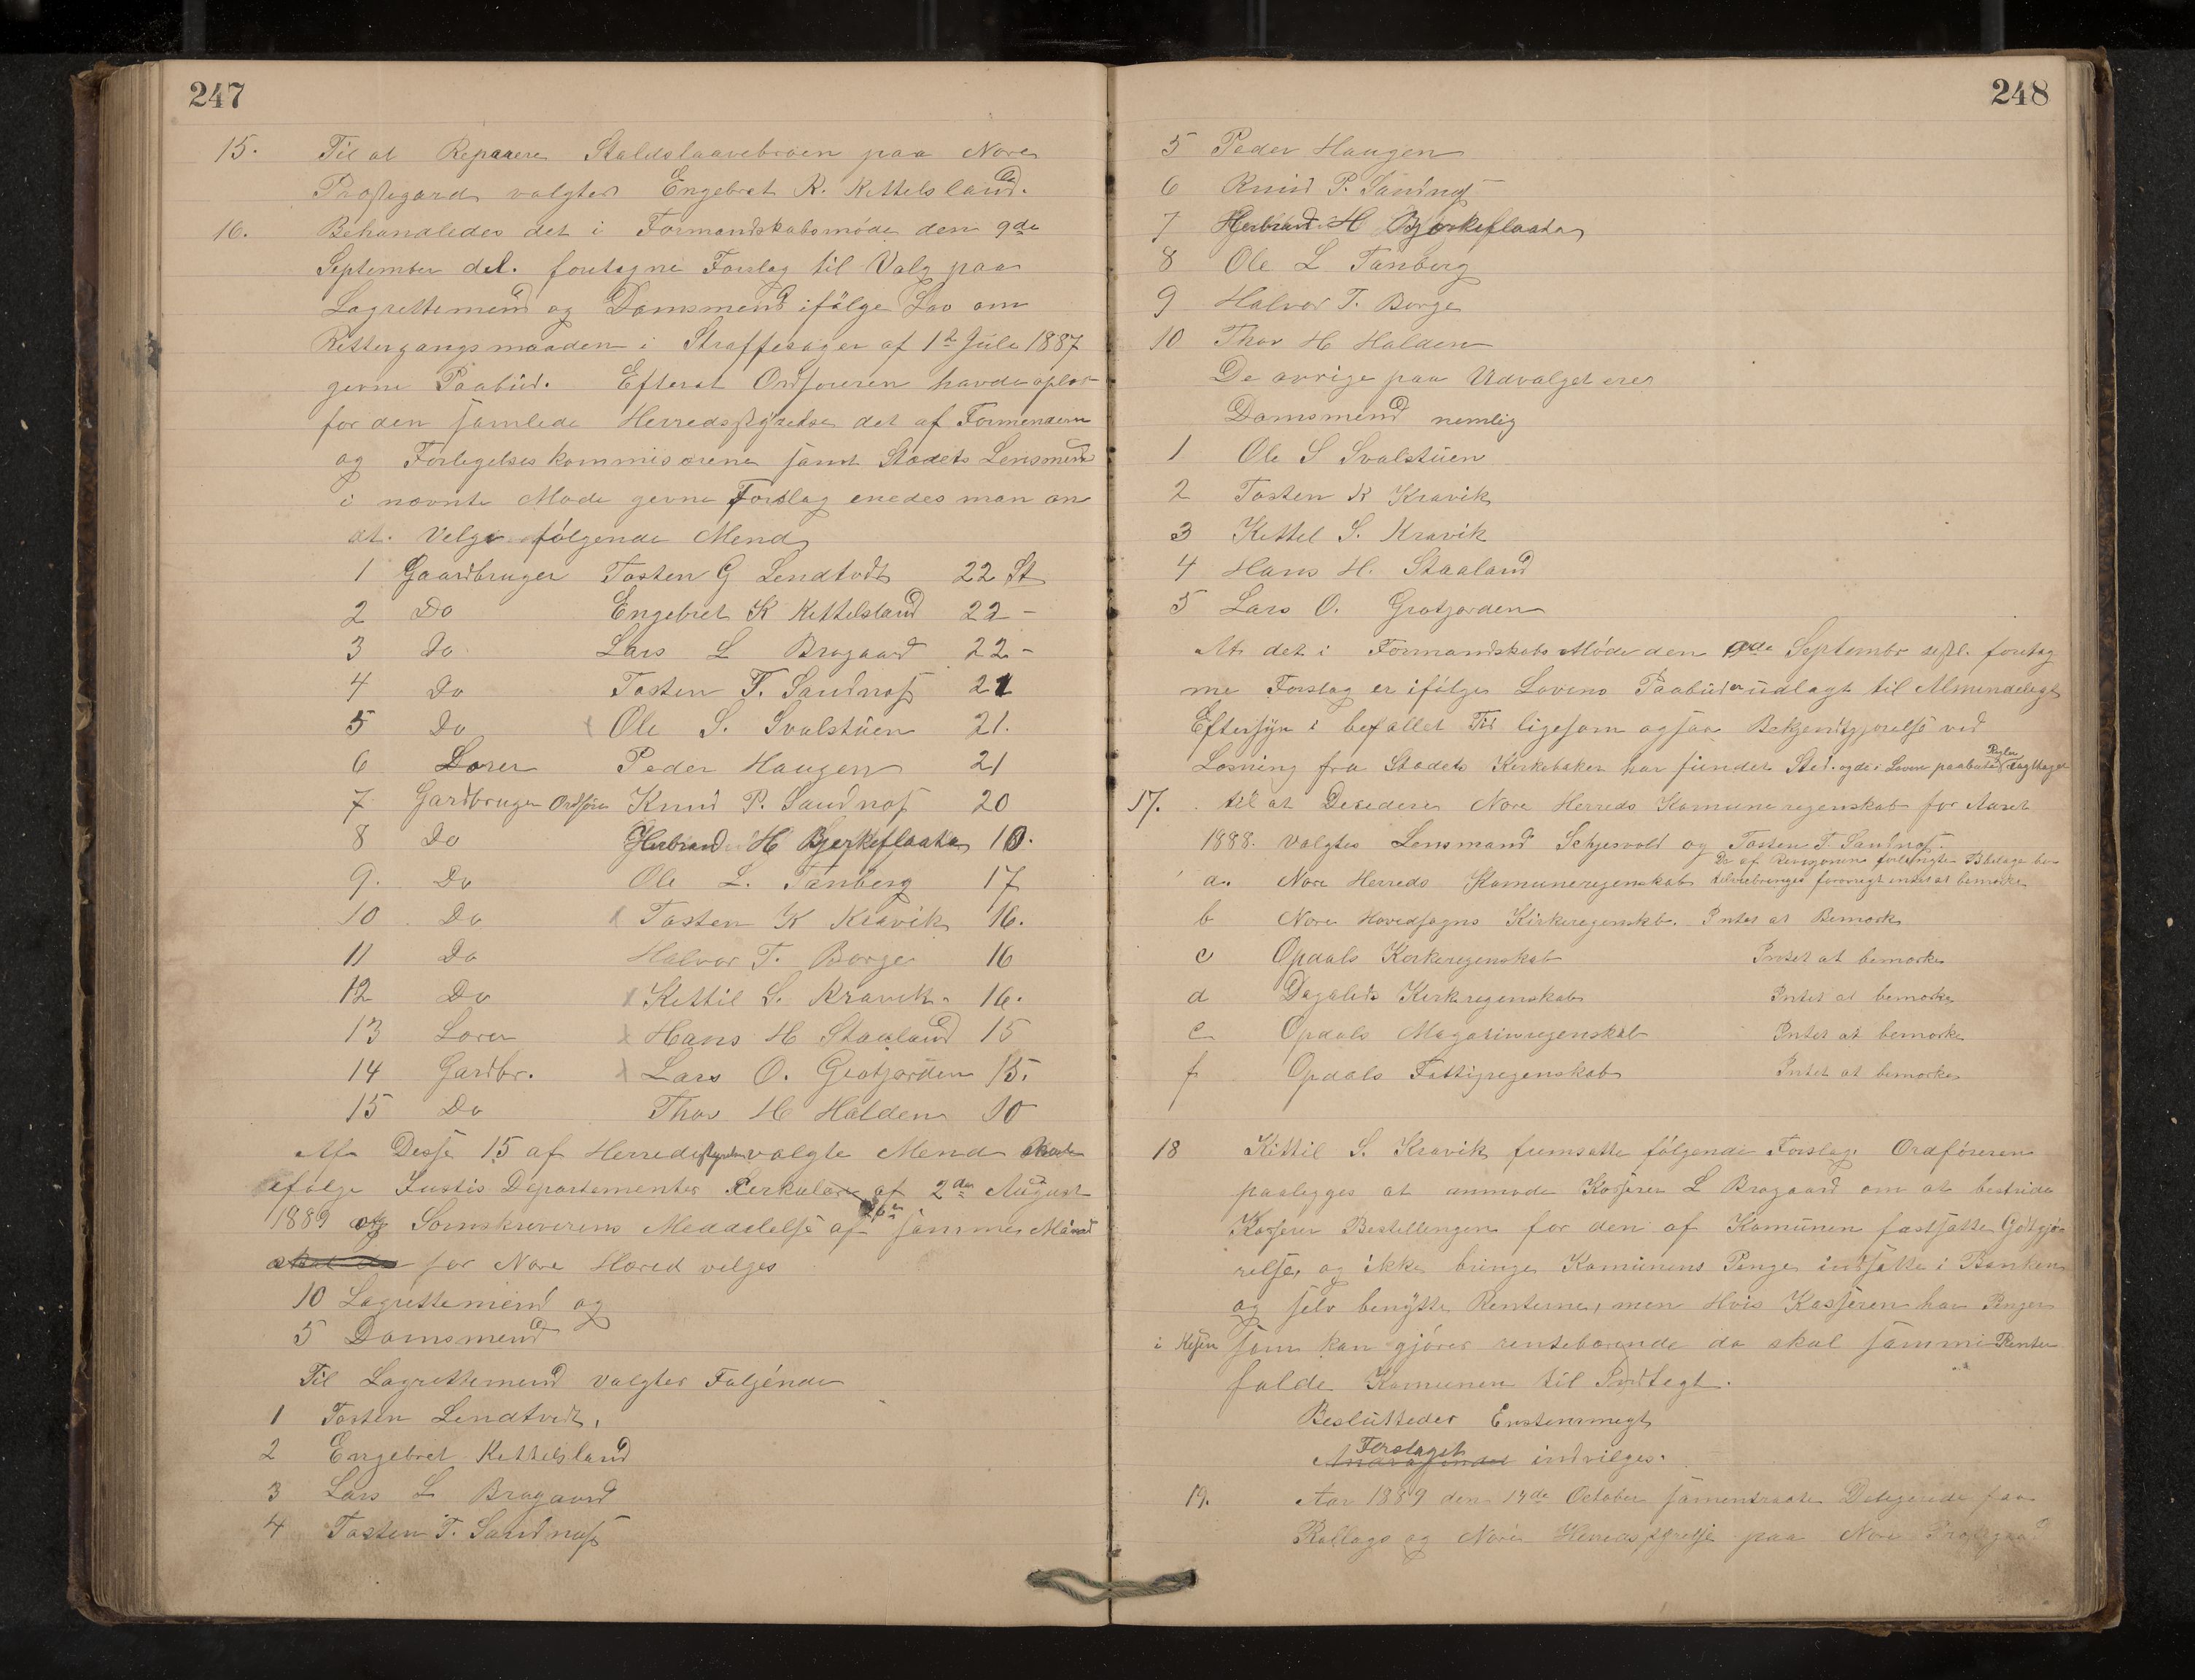 247
15. Til at Reparere Staldslaavebroen paa Nore
Prestegaard valgtes Engebret K. Kittelsland.
16. Behandledes det i Formandskabsmøde den 9de
September d.A. foretagne Forslag til Valg paa
Lagrettemend og Domsmend ifølge Lov om
Rettergangsmaaden i Straffesager af 1ste Juli 1887
gevne Paabud. Efterat Ordføreren havde oplæst
for den samlede Herredsstyrelse det af Formenderne
og Forligelseskommisærene samt Stædets Lensmend
i nævnte Møde gevne Forslag enedes man om
at Velge følgende Mend
1 Gaardbruger Tosten G Lendtvedt 22 St
2 Do Engebret K Kittelsland 22 –
3 Do Lars L Bragaard 22 –
4 Do Tosten T. Sandnæss 21
5 Do x Ole S. Svalstuen 21.
6 Lærer Peder Haugen 21
7 Gardbruger Ordfører Knud P. Sandnæss 20
8 Do Herbrand H Bjerkeflaata 18.
9. Do Ole L. Tanberg 17
10 Do x Tosten K Kravik 16.
11 Do Halvor T. Borge 16
12 Do x Kittil S. Kravik 16.
13 Lærer x Hans H Staaland 15
14 Gardbr. x Lars O. Grotjorden 15.
15 Do Thor H Halden 10
Af Disse 15 af Herredsstyrelsen valgte Mend skulde
ifølge Justis Departementes Cerkulære af 2den August
1889 og Sorenskriverens Meddelelse af 26de samme Maaned
skal der for Nore Hered velges
10 Lagrettemend og
5 Domsmend
Til Lagrettemend valgtes Følgende
1 Tosten Lendtvedt.
2 Engebret Kittelsland
3 Lars L Bragaard
4 Tosten T. Sandnæss
248
5 Peder Haugen
6 Knud P. Sandnæss
7 Herbrand H Bjørkeflaata
8 Ole L Tanberg
9 Halvor T. Borge
10 Thor H Halden
De øvrige paa Udvalget eres
Domsmend nemlig
1 Ole S Svalstuen
2 Tosten K Kravik
3 Kittel S. Kravik
4 Hans H. Staaland
5 Lars O. Grotjorden
At det i Formandskabs Møde den 9de Septembr foretag
ne Forslag er ifølge Lovens Paabud udlagt til Almindeligt
Eftersyn i befallet Tid ligesom ogsaa Bekjendtgjørelse ved
Læsning fra Stædets Kirkebakker har fundet Sted. og de i Loven paabudne Regler iagttaget
17. til at Decedere Nore Herreds Komuneregenskab for Aaret
1888. valgtes Lensmand Schjesvold og Tosten T. Sandnæss.
a. Nore Herreds Komuneregenskab De af Revisjonen forlangte Bilage be-
tilveiebringes forøvrigt intet at bemærke
b Nore Hovedsogns Kirkeregenskb. Intet at Bemærk
c Opdals Kerkeregenskab Intet at bemærke
d Dagalids Kerkregenskab Intet at bemærke
e Opdals Magasinregenskab Intet at bemærke
f Opdals Fattigregenskab Intet at bemærke
18 Kittil S. Kravik fremsatte følgende Forslag. Ordføreren
paalegges at anmode Kasserer L Bragaard om at bestride
Kasserer Bestellingen for den af Komunen fastsatte Godtgjø-
relse, og ikke bringe Komunens Penge indsatte i Banken
og selv benytte Renterne, men Hvis Kasseren har Penger
i Kassen som kan gjøres rentebærende da skal samme Renter
falde Komunen til Indtegt.
Besluttedes Enstemmegt
Forslaget indvilges.
19. Aar 1889 den 14de October sammentraadte Delegerede fra
Rollags og Nore Herredsstyrelse paa Nore Prestegaard